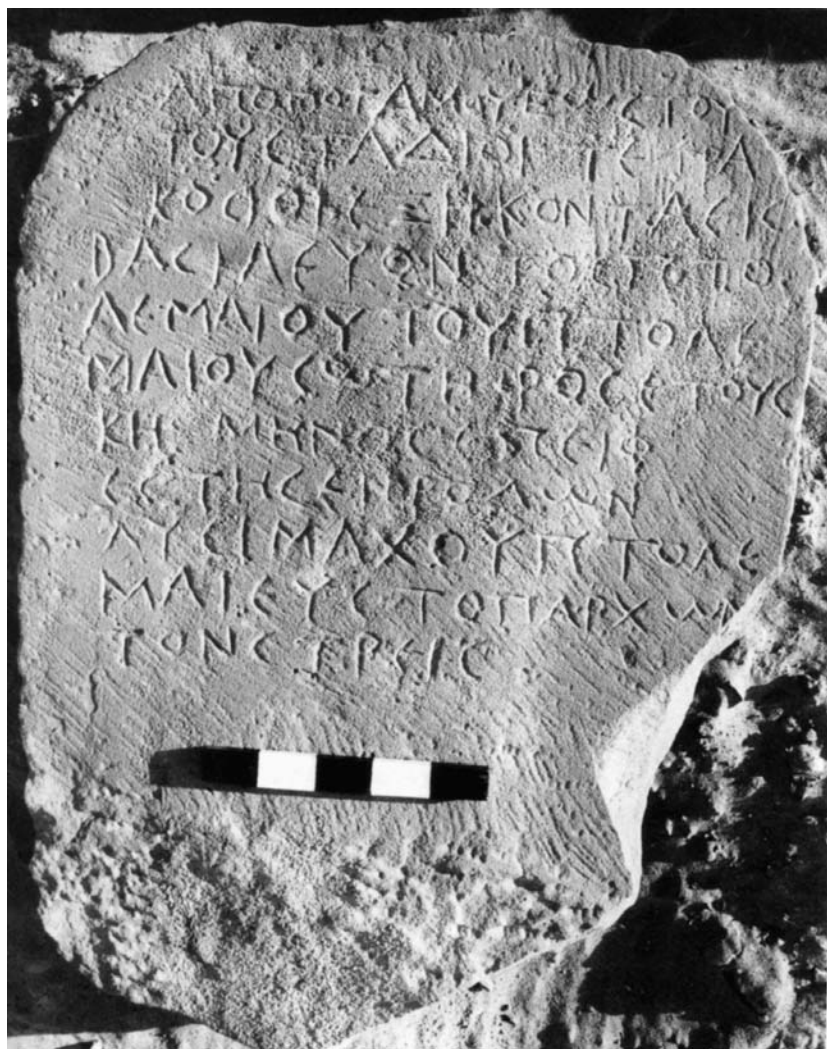 ΑΠΟΠΟΤΑΜΟΥΕΩΣΤΟΥ
ΤΟΥΣΤΑΔΙΟΙΤΕΤΡΑ
ΚΟΣΙΟΙΕΞΗΚΟΝΤΑΕΙΣ
ΒΑΣΙΛΕΥΟΝΤΟΣΠΤΟ
ΛΕΜΑΙΟΥΤΟΥΠΤΟΛΕ
ΜΑΙΟΥΣΩΤΗΡΟΣΕΤΟΥΣ
ΚΗ ΜΗΝΟΣΕΠΕΙΦ
ΕΣΤΗΣΕΝΡΟΔΩΝ
ΛΥΣΙΜΑΧΟΥΠΤΟΛΕ
ΜΑΙΕΥΣΤΟΠΑΡΧΩΝ
ΤΟΝΣΤΡΕΙΣ